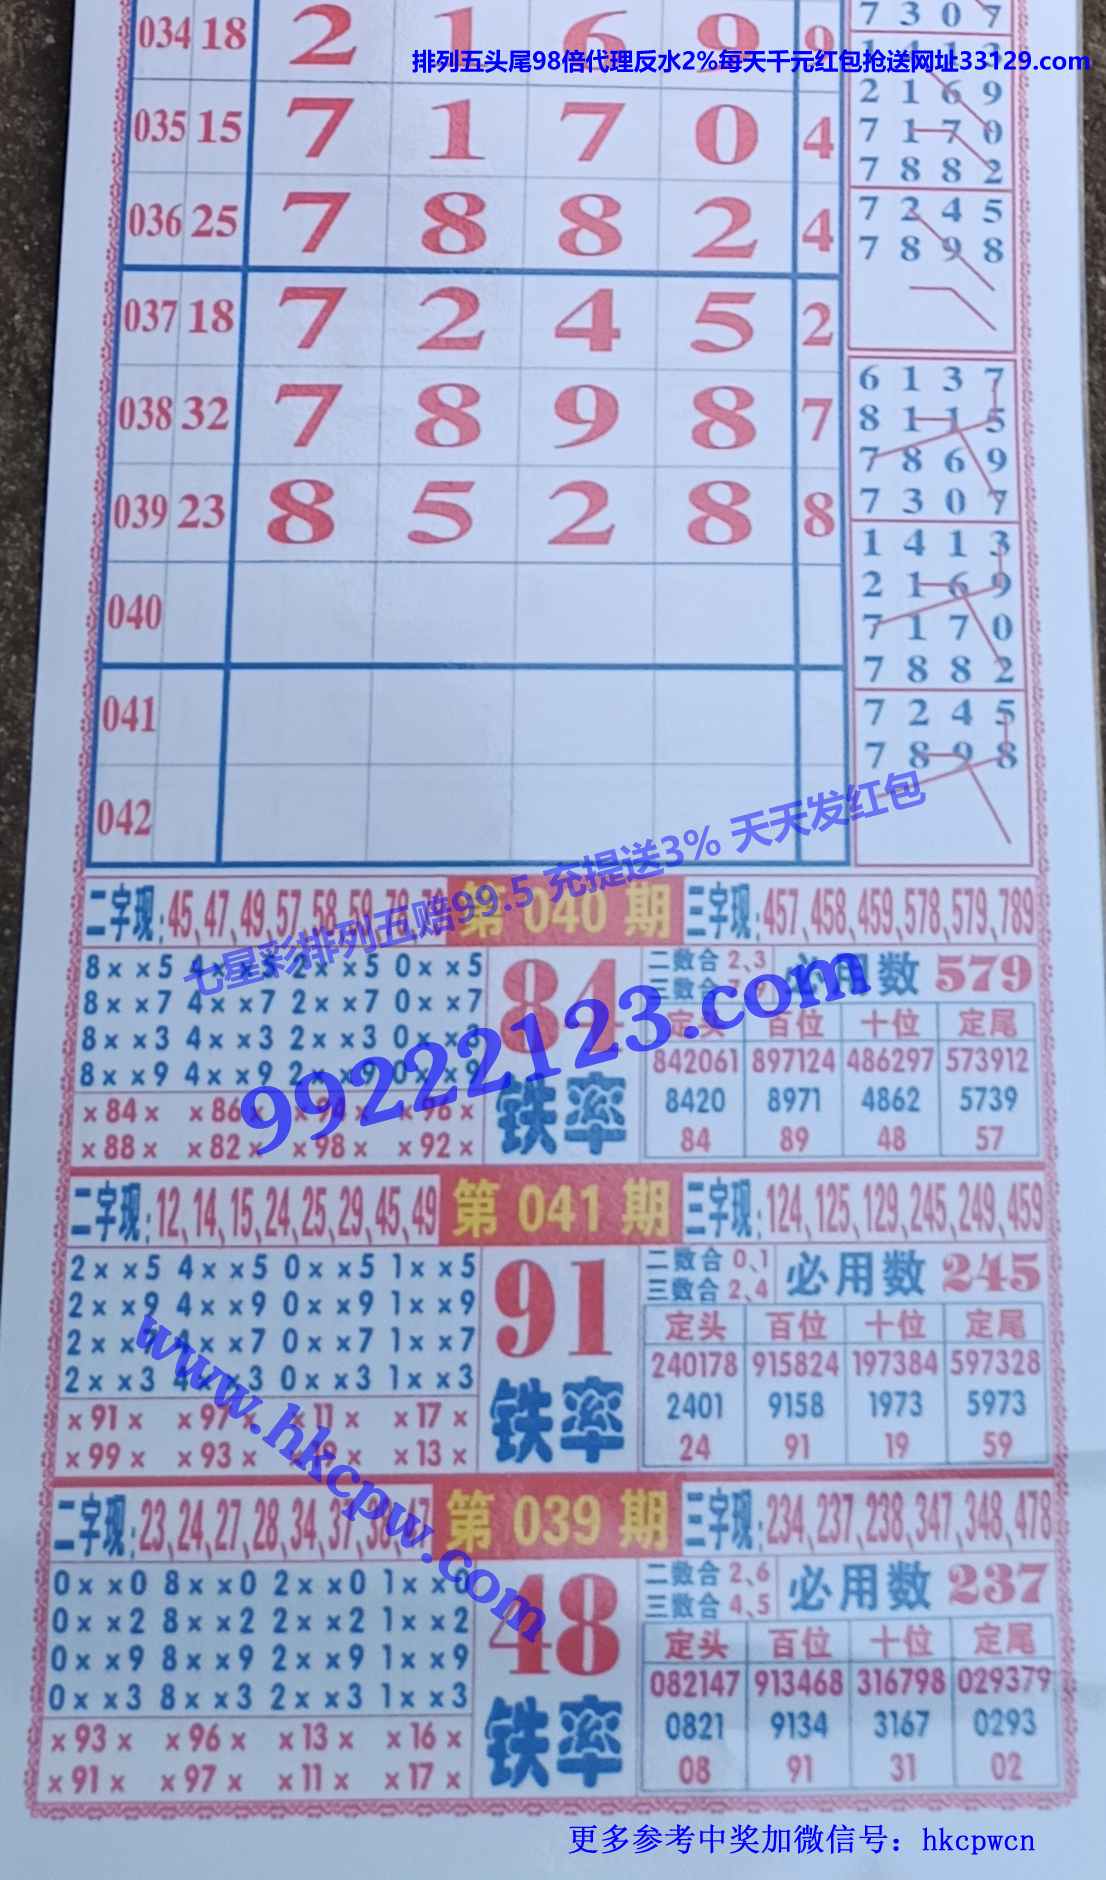 034 18 2 1 6 9 9
035 15 7 1 7 0 4
036 25 7 8 8 2 4
037 18 7 2 4 5 2
038 32 7 8 9 8 7
039 23 8 5 2 8 8
040
041
042
7 3 0 7
1 4 1 3
2 1 6 9
7 1 7 0
7 8 8 2
7 2 4 5
7 8 9 8
6 1 3 7
8 1 1 5
7 8 6 9
7 3 0 7
1 4 1 3
2 1 6 9
7 1 7 0
7 8 8 2
7 2 4 5
7 8 9 8
排列五头尾98倍代理反水2%每天千元红包抢送网址33129.com
七星彩排列五赔99.5 充提送3% 天天发红包
99222123.com
www.hkcpw.com
二字现:45,47,49,57,58,59,78,79 第 040 期 三字现:457,458,459,578,579,789
8××5 4××5 2××5 0××5
8××7 4××7 2××7 0××7
8××3 4××3 2××3 0××3
8××9 4××9 2××9 0××9
×84× ×86× ×94× ×96×
×88× ×82× ×98× ×92×
84
铁率
二数合 2、3
三数合
必用数 579
定头 百位 十位 定尾
842061 897124 486297 573912
8420 8971 4862 5739
84 89 48 57
二字现:12,14,15,24,25,29,45,49 第 041 期 三字现:124,125,129,245,249,459
2××5 4××5 0××5 1××5
2××9 4××9 0××9 1××9
2××7 4××7 0××7 1××7
2××3 4××3 0××3 1××3
×91× ×97× ×11× ×17×
×99× ×93× ×19× ×13×
91
铁率
二数合 0、1
三数合 2、4
必用数 245
定头 百位 十位 定尾
240178 915824 197384 597328
2401 9158 1973 5973
24 91 19 59
二字现:23,24,27,28,34,37,38,47 第 039 期 三字现:234,237,238,347,348,478
0××0 8××0 2××0 1××0
0××2 8××2 2××2 1××2
0××9 8××9 2××9 1××9
0××3 8××3 2××3 1××3
×93× ×96× ×13× ×16×
×91× ×97× ×11× ×17×
48
铁率
二数合 2、6
三数合 4、5
必用数 237
定头 百位 十位 定尾
082147 913468 316798 029379
0821 9134 3167 0293
08 91 31 02
更多参考中奖加微信号：hkcpwcn